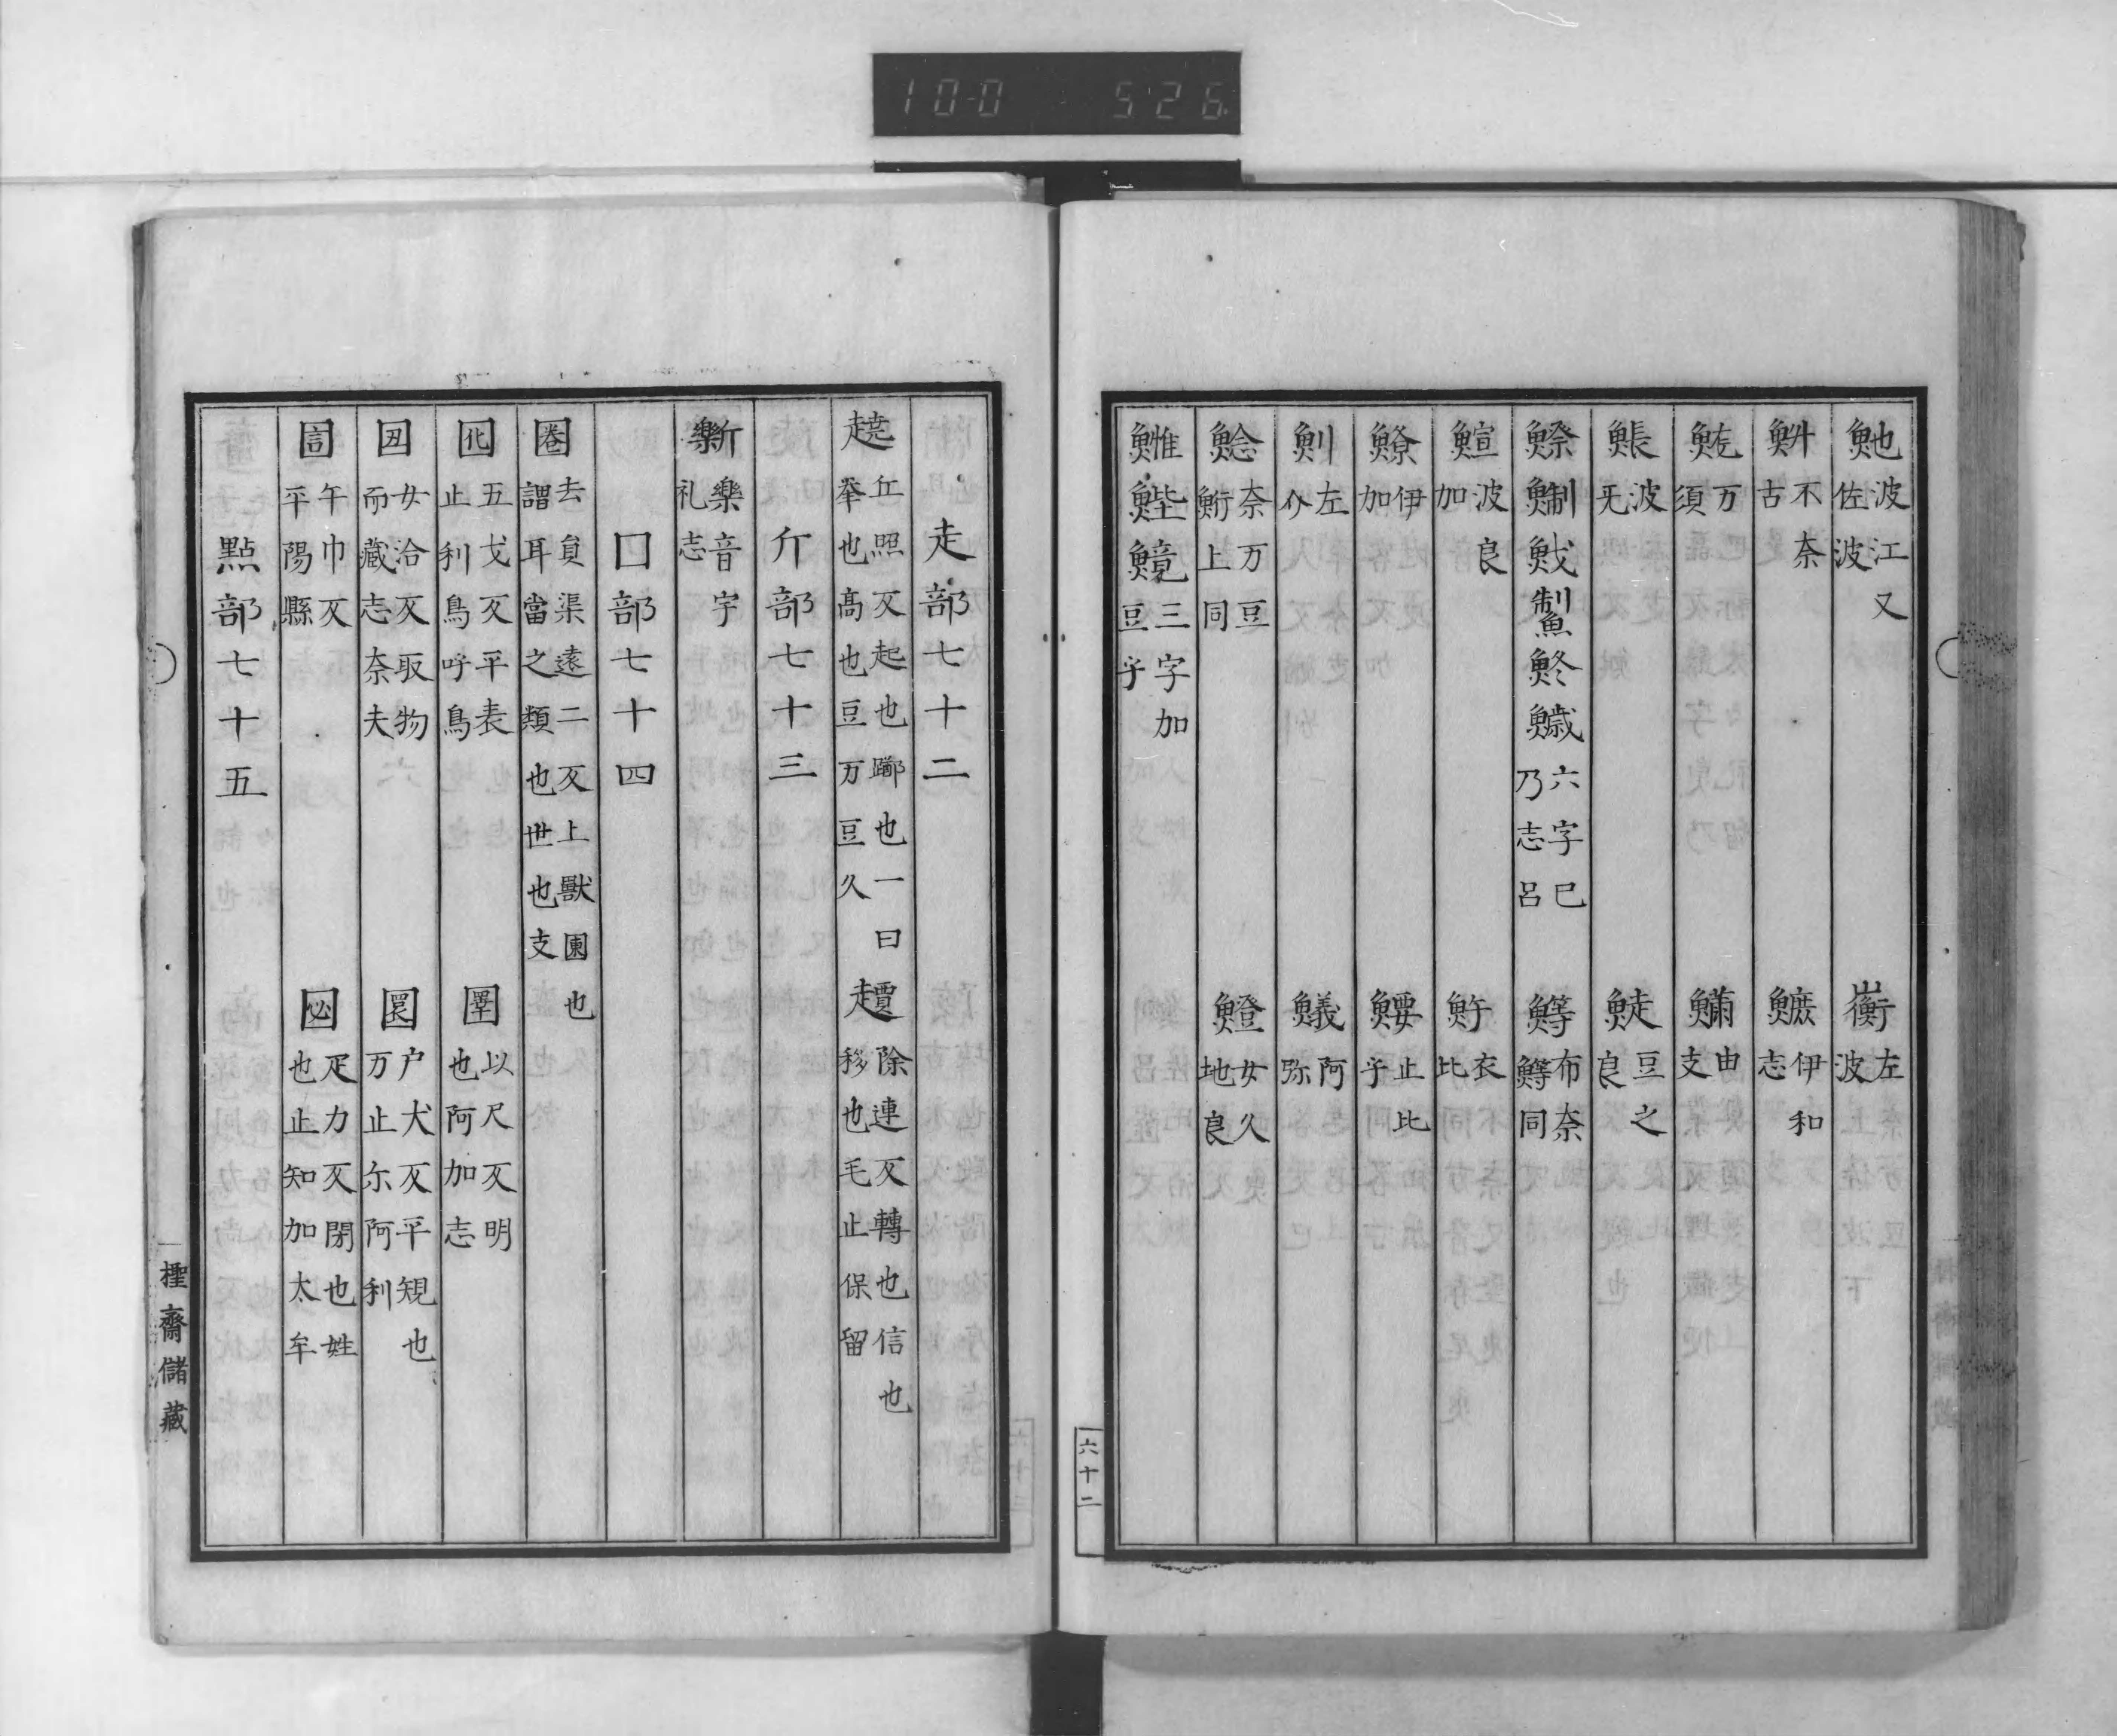 100 526
䱉波江又佐波 𱉸左波
不奈古 伊和志
万須 由支
波无 鯐豆之良
鰶六字巳乃志呂 布奈 同
波良加 衣比
伊加 鰋止比乎
左介 鱶阿弥
鯰奈万豆 鮬上同 女久地良
三字加豆乎
六十二
走部七十二
趬丘照反起也躑也一曰擧也髙也豆万豆久 除連反轉也信也移也毛止保留
斤部七十三
斵樂音字礼志
囗部七十四
圈去負渠遠二反上獸園也謂耳當之類也世也支
囮五戈反平表止利鳥呼鳥 圛以尺反明也阿加志
女洽反取物而藏志奈夫 户犬反平規也万止尓阿利
午巾反平陽縣 疋力反閉也姓也止知加太牟
點部七十五
㮓齋儲藏